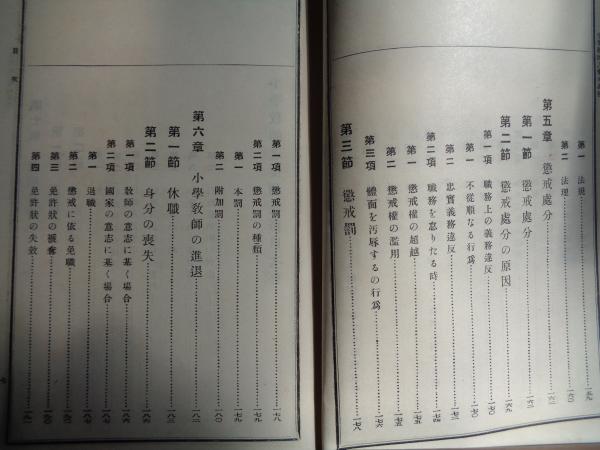 第一 法規 一五九
第二 法理 一六〇
第五章 懲戒處分 一六二
第一節 懲戒處分 一六二
第二節 懲戒處分の原因 一六九
第一項 職務上の義務違反 一七〇
第一 不從順なる行爲 一七〇
第二 忠實義務違反 一七二
第二項 職務を怠りたる時 一七四
第一 懲戒權の超越 一七五
第二 懲戒權の濫用 一七五
第三項 體面を汚辱するの行爲 一七六
第三節 懲戒罰 一七八
第一項 懲戒罰 一七八
第二項 懲戒罰の種類 一七九
第一 本罰 一七九
第二 附加罰 一八〇
第六章 小學敎師の進退 一八二
第一節 休職 一八三
第二節 身分の喪失 一八六
第一項 敎師の意志に基く場合 一八六
第二項 國家の意志に基く場合 一八七
第一 退職 一八七
第二 懲戒に依る免職
第三 免許狀の褫奪
第四 免許狀の失效
目次
七